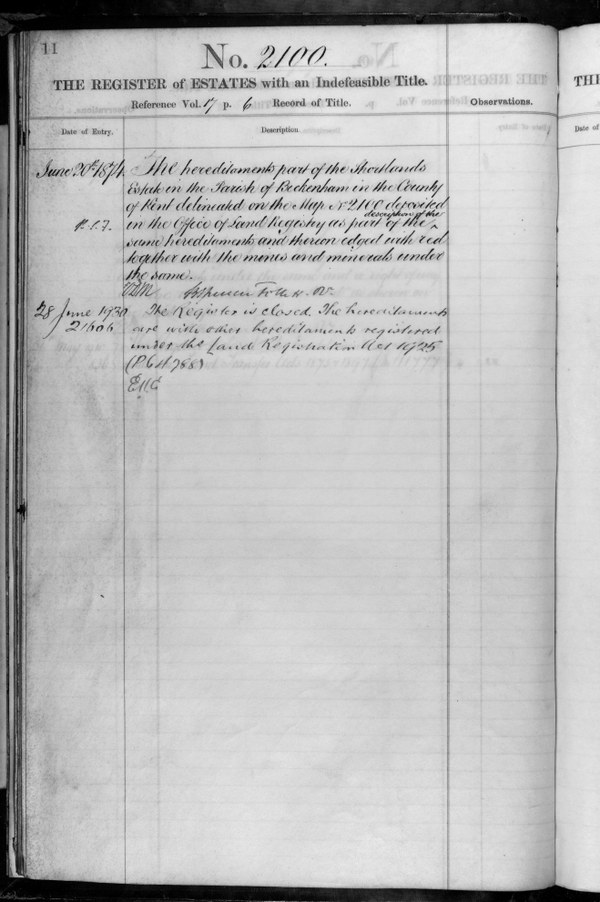 11
No. 2100.
THE REGISTER of ESTATES with an Indefeasible Title.
Reference Vol. 17 p. 6 Record of Title.
Observations.
Date of Entry.
Description
June 20th 1874
The hereditaments part of the Shortlands
Estate in the Parish of Beckenham in the County
of Kent delineated on the Map No 2100 deposited
in the Office of Land Registry as part of the description of the
same hereditaments and thereon edged with red
together with the mines and minerals under
the same.
28 June 1930
The Register is closed. The hereditaments
21606
are with other hereditaments registered
under the Land Registration Act 1925
THE
Date of